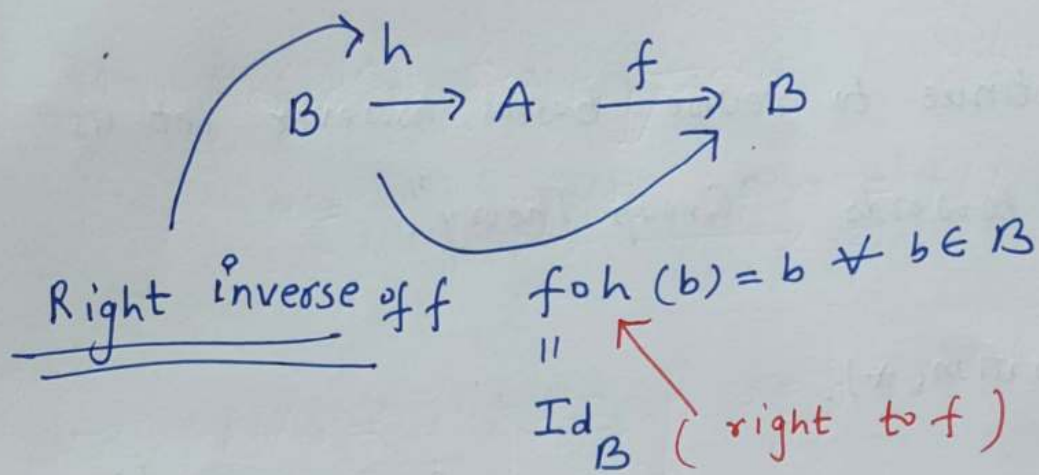 h f
B → A → B
Right inverse of f foh (b) = b ∀ b ∈ B
"
Id_B ( right to f )